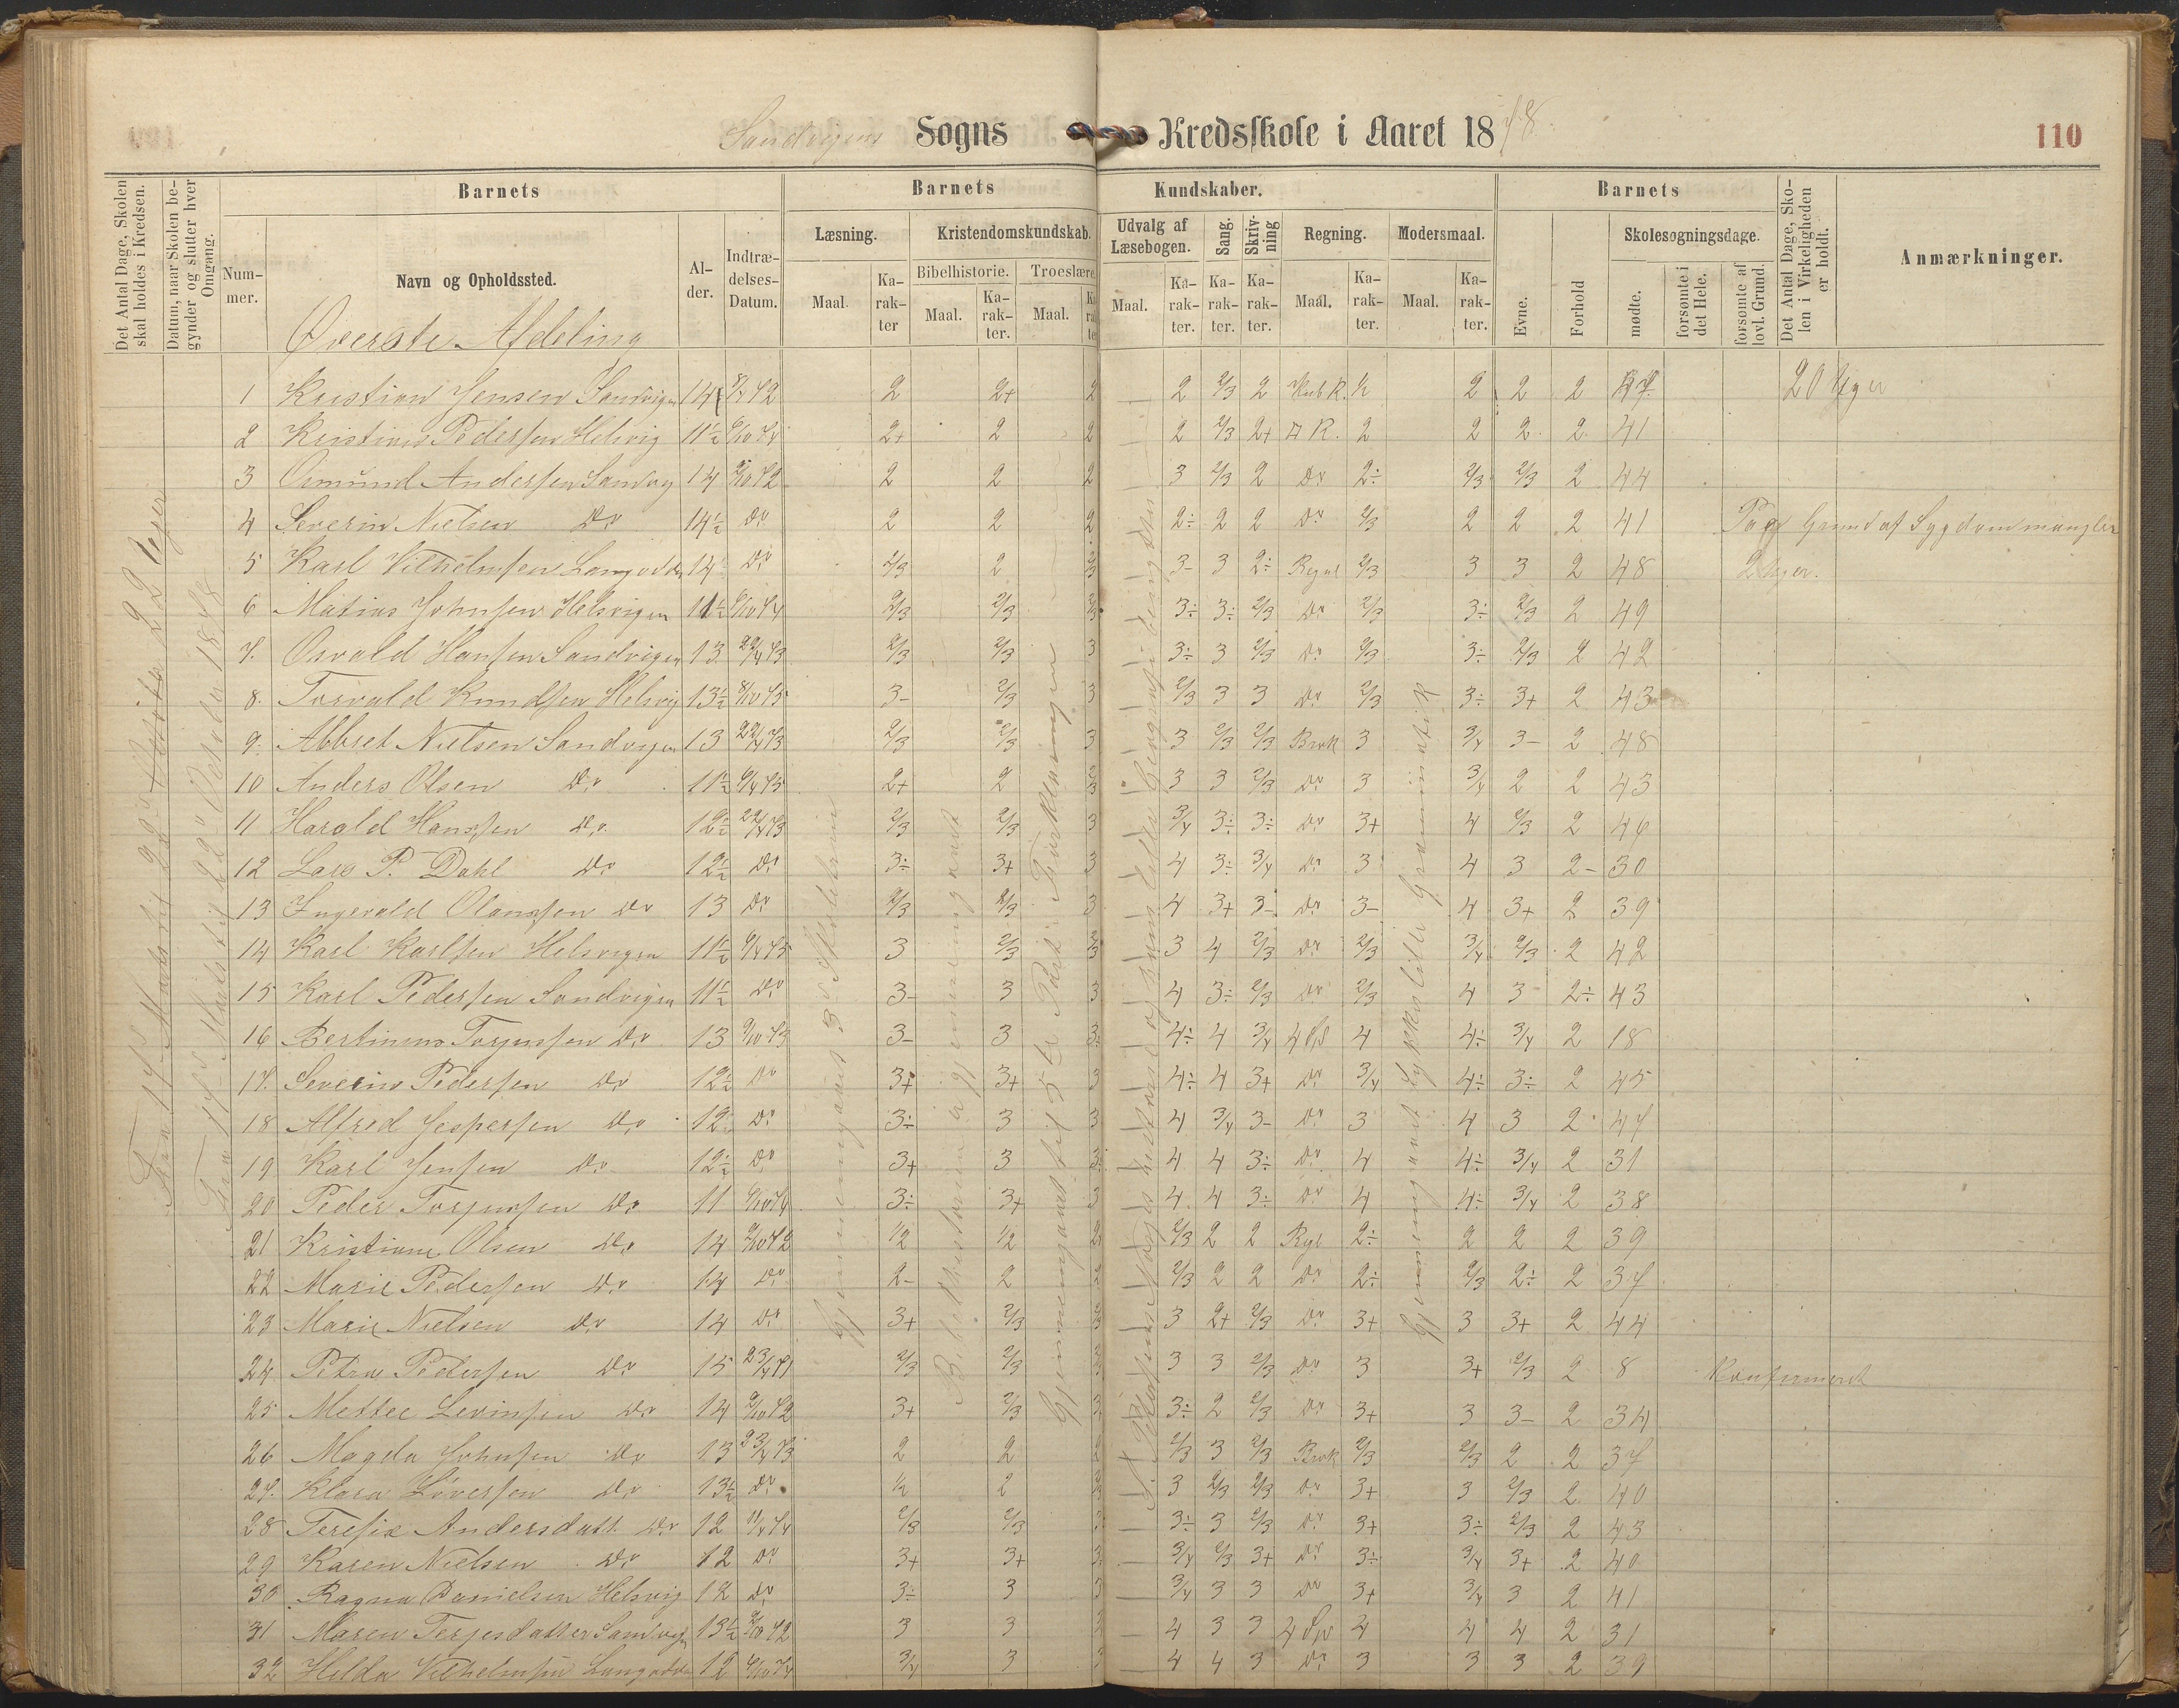 Sandvigens Sogns Kredsskole i Aaret 1878.
110
Det Antal Dage, Skolen skal holdes i Kredsen.
Datum, naar Skolen begynder og slutter hver Omgang.
Barnets
Nummer.
Navn og Opholdssted.
Alder.
Indtrædelses-Datum.
Barnets Kundskaber.
Læsning.
Maal.
Karakter
Kristendomskundskab.
Bibelhistorie.
Maal.
Karakter.
Troeslære
Maal.
Udvalg af Læsebogen.
Maal.
Karakter.
Sang.
Karakter.
Skrivning
Karakter.
Regning.
Maal.
Karakter.
Modersmaal.
Maal.
Karakter.
Barnets
Evne.
Forhold
Skolesøgningsdage.
mødte.
forsømte i det Hele.
forsømte af lovl. Grund.
Det Antal Dage, Skolen i Virkeligheden er holdt.
Anmærkninger.
Øverste Afdeling
1 Kristian Jensen Sandvigen 14 2 2+ 2 2 2/3 2 2 2 2 47 20 Uger
2 Kristian Pedersen Helsvig 11½ 2+ 2 2 2 2/3 2+ 4 R. 2 2 2 2 41
3 Osmund Andersen Sandvig 14 2 2 2 3 2/3 2 Do 2÷ 2/3 2/3 2 44
4 Severin Nielsen Do 14½ Do 2 2 2 2÷ 2 2 Do 2/3 2 2 2 41 Paa Grund af Sygdom mangler
5 Karl Vilhelmsen Langodden 14 Do 2/3 2 2/3 3- 3 2÷ Regul 2/3 3 3 2 48 2 Uger.
6 Matias Johnsen Helsvigen 11½ 6/10 74 2/3 2/3 2/3 3÷ 3÷ 2/3 Do 2/3 3÷ 2/3 2 49
7. Osvald Hansen Sandvigen 13 22/4 73 2/3 2/3 3 3÷ 3 2/3 Do 2/3 3÷ 2/3 2 42
8. Torvald Knudsen Helsvig 13½ 8/10 75 3- 2/3 3 2/3 3 3 Do 2/3 3÷ 3+ 2 43
9. Abbret Nielsen Sandvigen 13 22/4 73 2/3 2/3 3 3 2/3 2/3 Brok 3 3/4 3- 2 48
10 Anders Olsen Do 11½ 6/4 75 2+ 2 2/3 3 3 2/3 Do 3 3/4 2 2 43
11 Harald Hansen Do 12½ 22/4 73 2/3 2/3 3 3/4 3÷ 3÷ Do 3+ 4 2/3 2 46
12 Lars P. Dahl Do 12½ Do 3÷ 3+ 3 4 3÷ 3/4 Do 3 4 3 2- 30
13 Ingevald Olansen Do 13 Do 2/3 2/3 3 4 3+ 3- Do 3- 4 3+ 2 39
14 Karl Karlsen Helsvigen 11½ 6/4 75 3 2/3 2/3 3 4 2/3 Do 2/3 3/4 2/3 2 42
15 Karl Pedersen Sandvigen 11½ Do 3- 3 3 4 3÷ 2/3 Do 2/3 4 3 2÷ 43
16 Bertinius Torjussen Do 13 9/10 73 3- 3 3÷ 4÷ 4 3/4 4 Sp 4 4÷ 3/4 2 18
17. Severin Pedersen Do 12½ Do 3+ 3+ 3 4÷ 4 3+ Do 3/4 4÷ 3÷ 2 45
18 Alfred Jespersen Do 12 Do 3÷ 3 3 4 3/4 3- Do 3 4 3 2 47
19 Karl Jensen Do 12½ Do 3+ 3 3÷ 4 4 3÷ Do 4 4÷ 3/4 2 31
20 Peder Torjussen Do 11 6/10 74 3÷ 3+ 3 4 4 3÷ Do 4 4÷ 3/4 2 38
21 Kristiane Olsen Do 14 9/10 72 1/2 1/2 2 2/3 2 2 Rgl 2÷ 2 2 2 39
22 Marie Pedersen Do 14 Do 2- 2 2 2/3 2 2 Do 2÷ 2/3 2÷ 2 37
23 Marie Nielsen Do 14 Do 3+ 2/3 2/3 3 2+ 2/3 Do 3+ 3 3+ 2 44
24 Petra Pedersen Do 15 23/4 71 2/3 2/3 2/3 3 3 2/3 Do 3 3+ 2/3 2 8 Konfirmeret
25 Mettee Levinsen Do 14 9/10 72 3+ 2/3 3 3÷ 2 2/3 Do 3+ 3 3- 2 34
26 Magda Johnsen Do 13 23/4 73 2 2 2 2/3 3 2/3 Brok 2/3 2/3 2 2 37
27. Klara Løversen Do 13½ Do 1/2 2 2/3 3 2/3 2/3 Do 3+ 3 2/3 2 40
28 Teresie Andersdatt. Do 12 11/4 74 2/3 2/3 3 3÷ 3 2/3 Do 3+ 3÷ 2/3 2 43
29 Karen Nielsen Do 12 Do 3+ 3+ 3 3/4 2/3 3+ Do 3÷ 3/4 3+ 2 40
30 Ragna Danielsen Helsvig 12 Do 3÷ 3 3 3/4 3 3 Do 3+ 3/4 3 2 41
31 Maren Terjesdatter Sandvigen 13½ 9/10 72 3 3 3 4 3 3 4 Sp 4 4 4 2 31
32 Hilda Vilhelmsen Langodden 12 6/10 74 3/4 3 3 4 4 3 Do 3 3 3 2 39
Fra 17de Marts til 22de Oktober 22 Uger
Fra 17de Marts til 22de October 1878
Gjennemgaaet 3die Skoletrin
Bibelhistorien er gjennemgaaet
Gjennemgaaet til 5te Part i Forklaringen
Gjennemgaaet Lykkes lille Grammatik